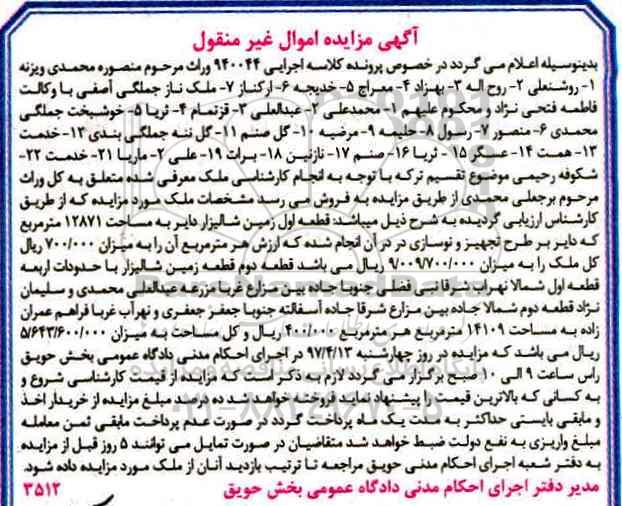 آگهی مزایده اموال غیر منقول
بدینوسیله اعلام می گردد در خصوص پرونده کلاسه اجرایی ۹۴۰۰۴۴ وراث مرحوم منصوره محمدی ویزنه
۱- روشنعلی ۲- روح اله ۳- بهزاد ۴- معراج ۵- خدیجه ۶- ارکناز ۷- ملک ناز جملگی آصفی با وکالت
فاطمه فتحی نژاد و محکوم علیهم ۱- محمدعلی ۲- عبدالعلی ۳- قزتمام ۴- ثریا ۵- خوشبخت جملگی
محمدی ۶- منصور ۷- رسول ۸- حلیمه ۹- مرضیه ۱۰- گل صنم ۱۱- گل ننه جملگی بندی ۱۲- خدمت
۱۳- همت ۱۴- عسگر ۱۵- ثریا ۱۶- صنم ۱۷- نازنین ۱۸- برات ۱۹- علی ۲- ماریا ۲۱- خدمت ۲۲-
شکوفه رحیمی موضوع تقسیم ترکه با توجه به انجام کارشناسی ملک معرفی شده متعلق به کل وراث
مرحوم برجعلی محمدی از طریق مزایده به فروش می رسد مشخصات ملک مورد مزایده که از طریق
کارشناس ارزیابی گردیده به شرح ذیل میباشد: قطعه اول زمین شالیزار دایر به مساحت ۱۲۸۷۱ مترمربع
که دایر بر طرح تجهیز و نوسازی در در آن انجام شده که ارزش هر مترمربع آن را به میزان ۷۰۰/۰۰۰ ریال
کل ملک را به میزان ۹/۰۰۹/۷۰۰/۰۰۰ ریال می باشد قطعه دوم قطعه زمین شالیزار با حدودات اربعه
قطعه اول شمالا نهراب شرقا نبی فضلی جنوبا جاده بین مزارع غربا مزرعه عبدالعلی محمدی و سلیمان
نژاد قطعه دوم شمالا جاده بین مزارع شرقا جاده آسفالته جنوبا جعفر جعفری و نهرآب غربا فراهم عمران
زاده به مساحت ۱۴۱۰۹ مترمربع هر مترمربع ۴۰۰/۰۰۰ ریال و کل مساحت به میزان ۵/۶۴۳/۶۰۰/۰۰۰
ریال می باشد که مزایده در روز چهارشنبه ۹۷/۴/۱۳ در اجرای احکام مدنی دادگاه عمومی بخش حویق
راس ساعت ۹ الی ۱۰ صبح برگزار می گردد لازم به ذکر است که مزایده از قیمت کارشناسی شروع و
به کسانی که بالاترین قیمت را پیشنهاد نماید فروخته خواهد شد ده درصد مبلغ مزایده از خریدار اخذ
و مابقی بایستی حداکثر به مدت یک ماه پرداخت گردد در صورت عدم پرداخت مابقی ثمن معامله
مبلغ واریزی به نفع دولت ضبط خواهد شد متقاضیان در صورت تمایل می توانند ۵ روز قبل از مزایده
به دفتر شعبه اجرای احکام مدنی حویق مراجعه تا ترتیب بازدید آنان از ملک مورد مزایده داده شود.
مدیر دفتر اجرای احکام مدنی دادگاه عمومی بخش حویق ۳۵۱۲